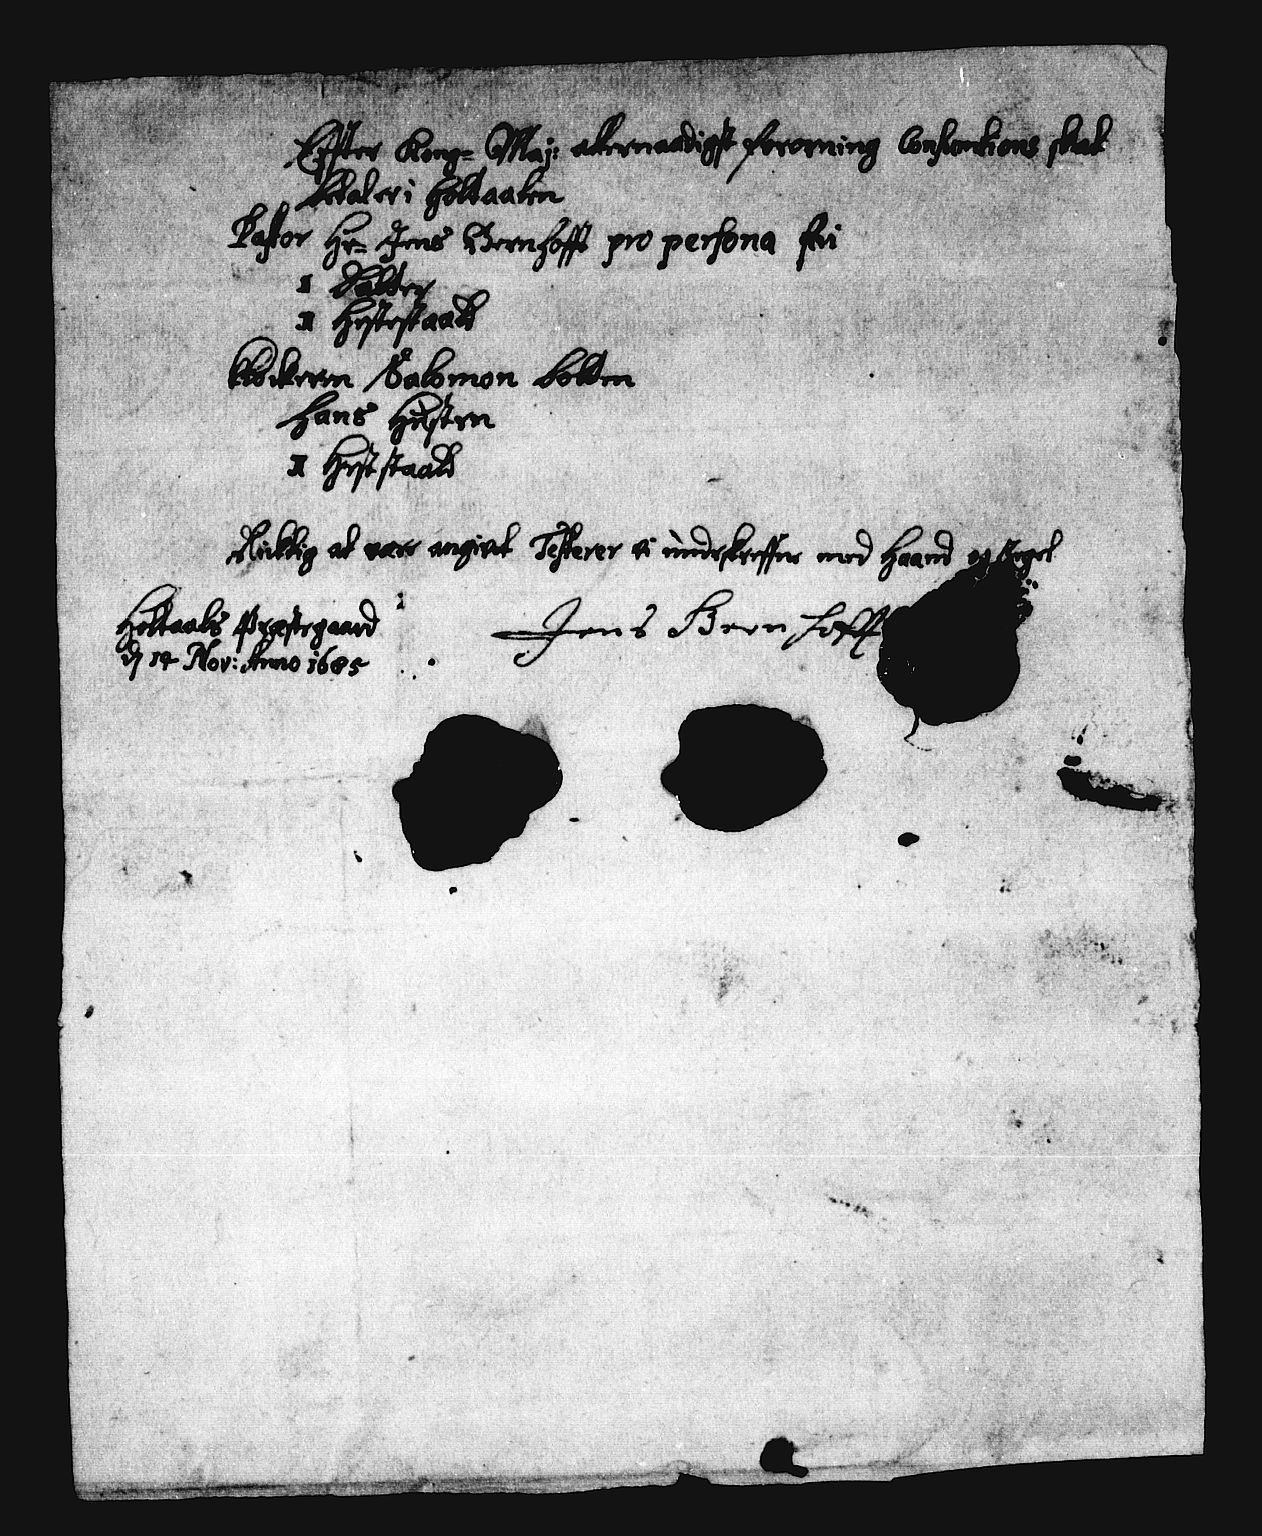 Effter Kong= Maj: allernaadigst fororning Consumtions skat
betaler i Holtaalen
Pastor Hr= Jens Bernhofft pro persona fri
1 datter
1 Hestestaald
Klockeren Salomon
Hans Hustru
1 Heststaald
Richtig at være angivet Testerer vi underskreffne med Haand og Segel
Holtaals Præstegaard
d 14 Nov: Anno 1685
Jens Bernhofft